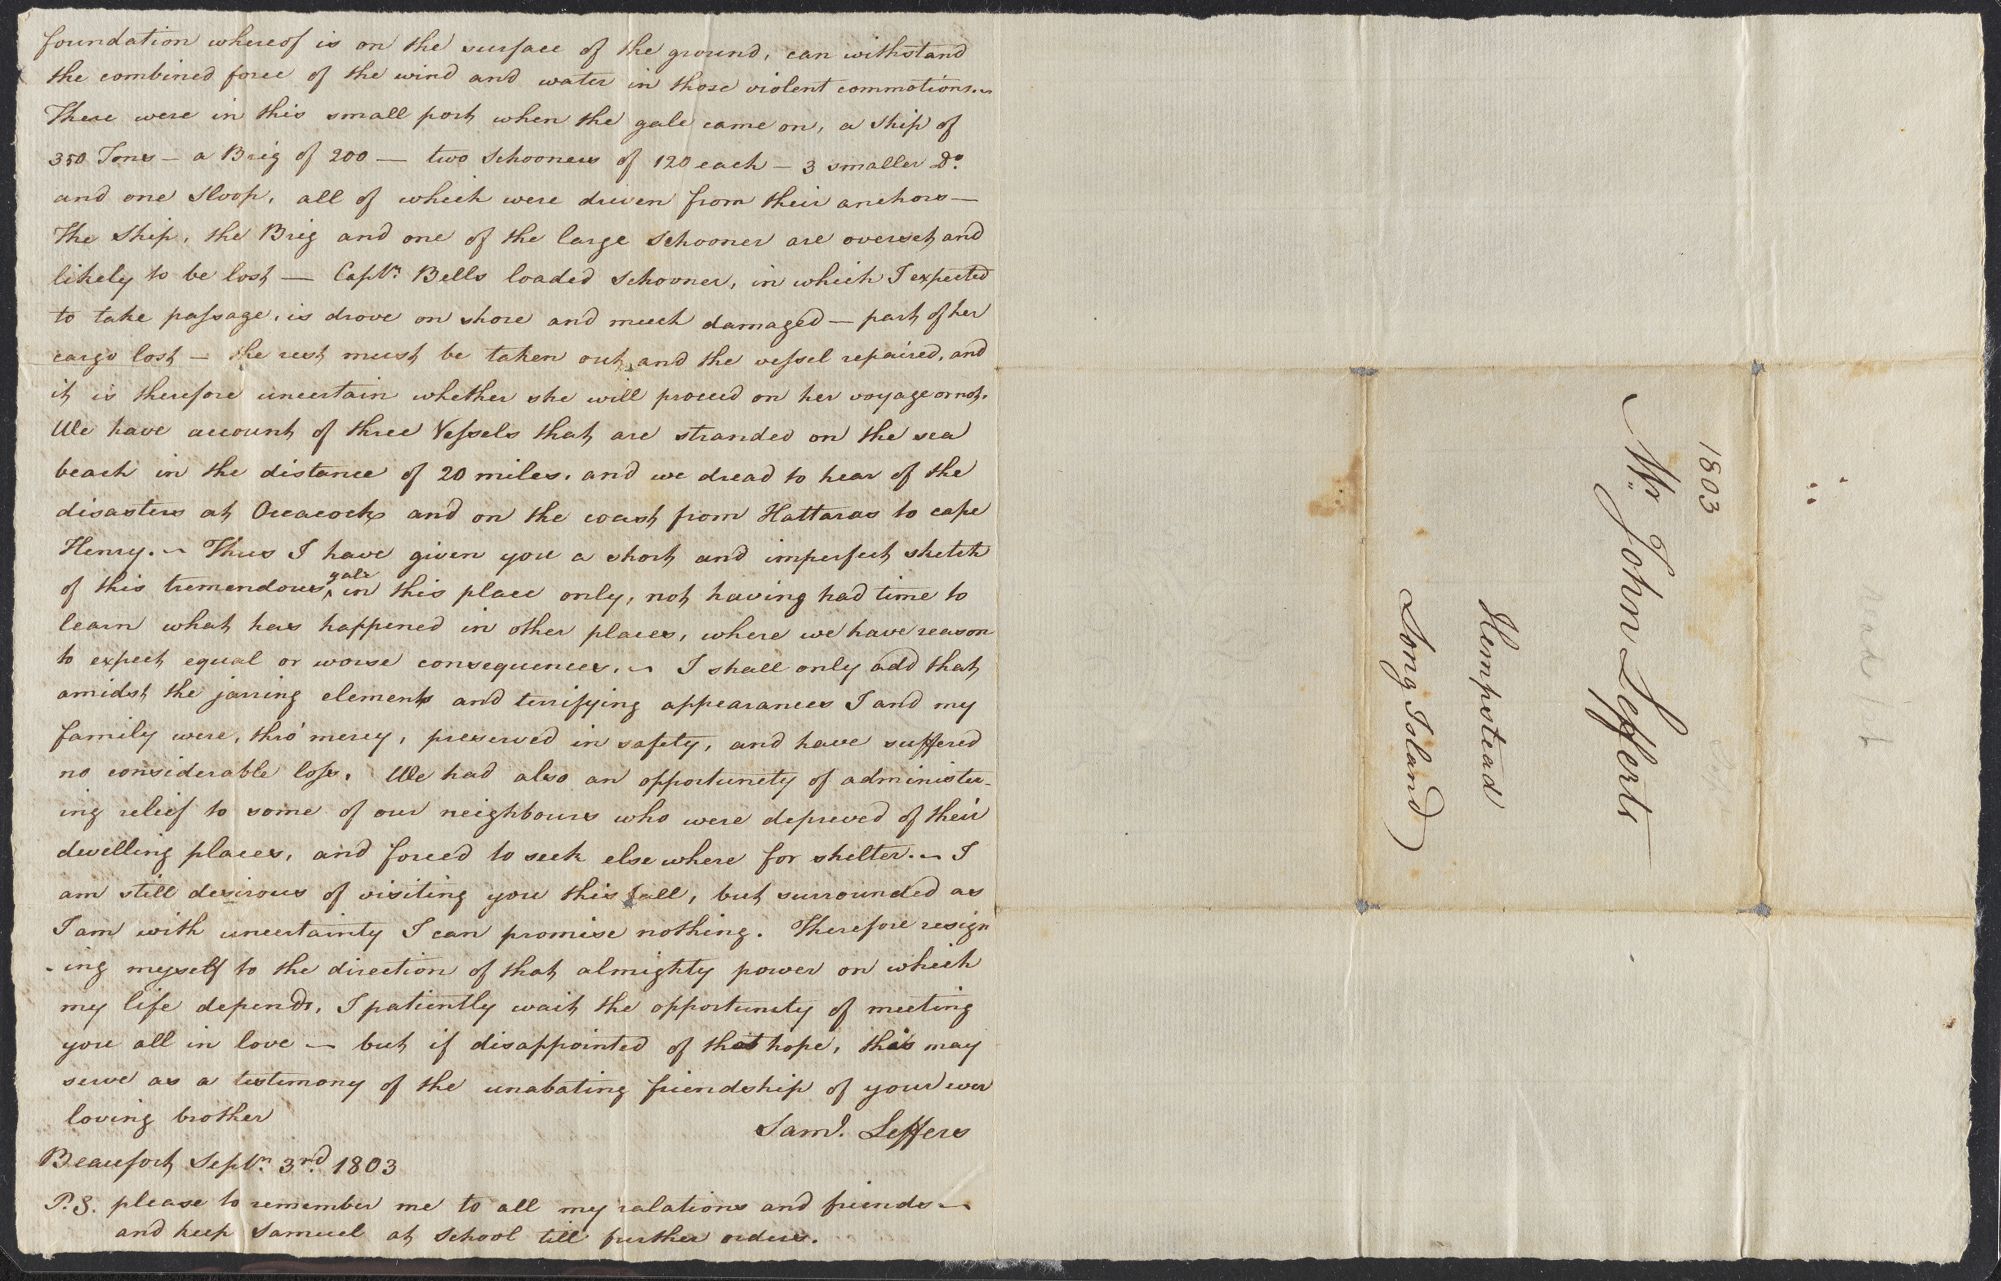 foundation whereof is on the surface of the ground, can withstand
the combined force of the wind and water in those violent commotions.~
There were in this small port when the gale came on, a ship of
350 Tons – a Brig of 200 – two Schooners of 120 each – 3 smaller Do.
and one sloop, all of which were driven from their anchors –
the ship, the Brig and one of the large schooner are overset and
likely to be lost – Captn. Bells loaded schooner, in which I expected
to take passage, is drove on shore and much damaged – part of her
cargo lost – the rest must be taken out, and the vessel repaired, and
it is therefore uncertain whether she will proceed on her voyage or not.
We have account of three Vessels that are stranded on the sea
beach in the distance of 20 miles, and we dread to hear of the
disasters at Occacock, and on the coast from Hattaras to cape
Henry. ~ Thus I have given you a short and imperfect sketch
of this tremendous ^gale in this place only, not having had time to
learn what has happened in other places, where we have reason
to expect equal or worse consequences. ~ I shall only add that
amidst the jarring elements and terrifying appearances I and my
family were, thro' mercy, preserved in safety, and have suffered
no considerable loss. We had also an opportunity of administer-
ing relief to some of our neighbours who were deprived of their
dwelling places, and forced to seek elsewhere for shelter. ~ I
am still desirous of visiting you this fall, but surrounded as
I am with uncertainty I can promise nothing. Therefore resign
-ing myself to the direction of that almighty power on which
my life depends, I patiently wait the opportunity of meeting
you all in love – but if disappointed of that hope, this may
serve as a testimony of the unabating friendship of your ever
loving brother
Saml. Leffers
Beaufort, Septr. 3rd. 1803
P.S. please to remember me to all my ralations and friends ~
and keep Samuel at School till further orders.
1803
Mr. John Lefferts
Hempstead
Long Island